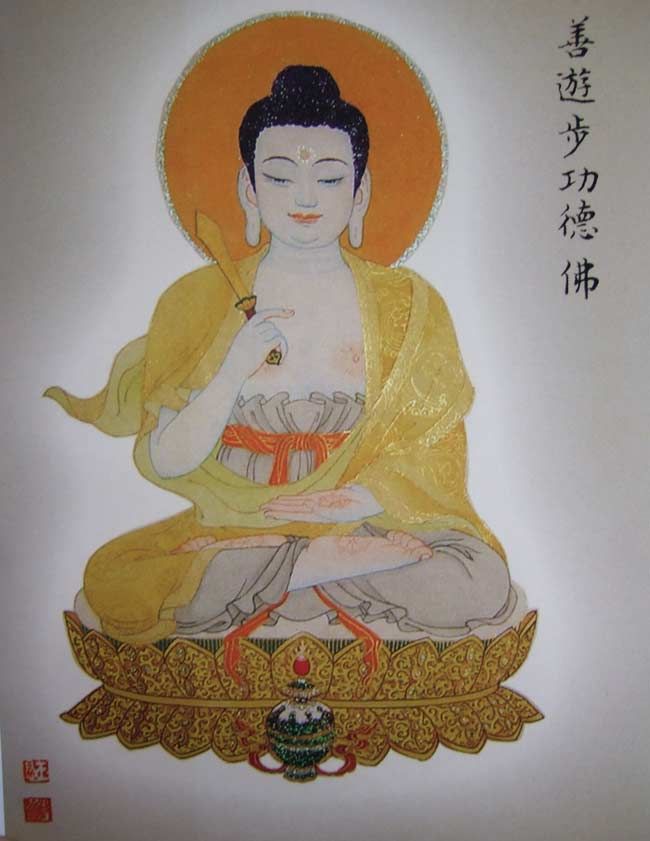 善遊步功德佛